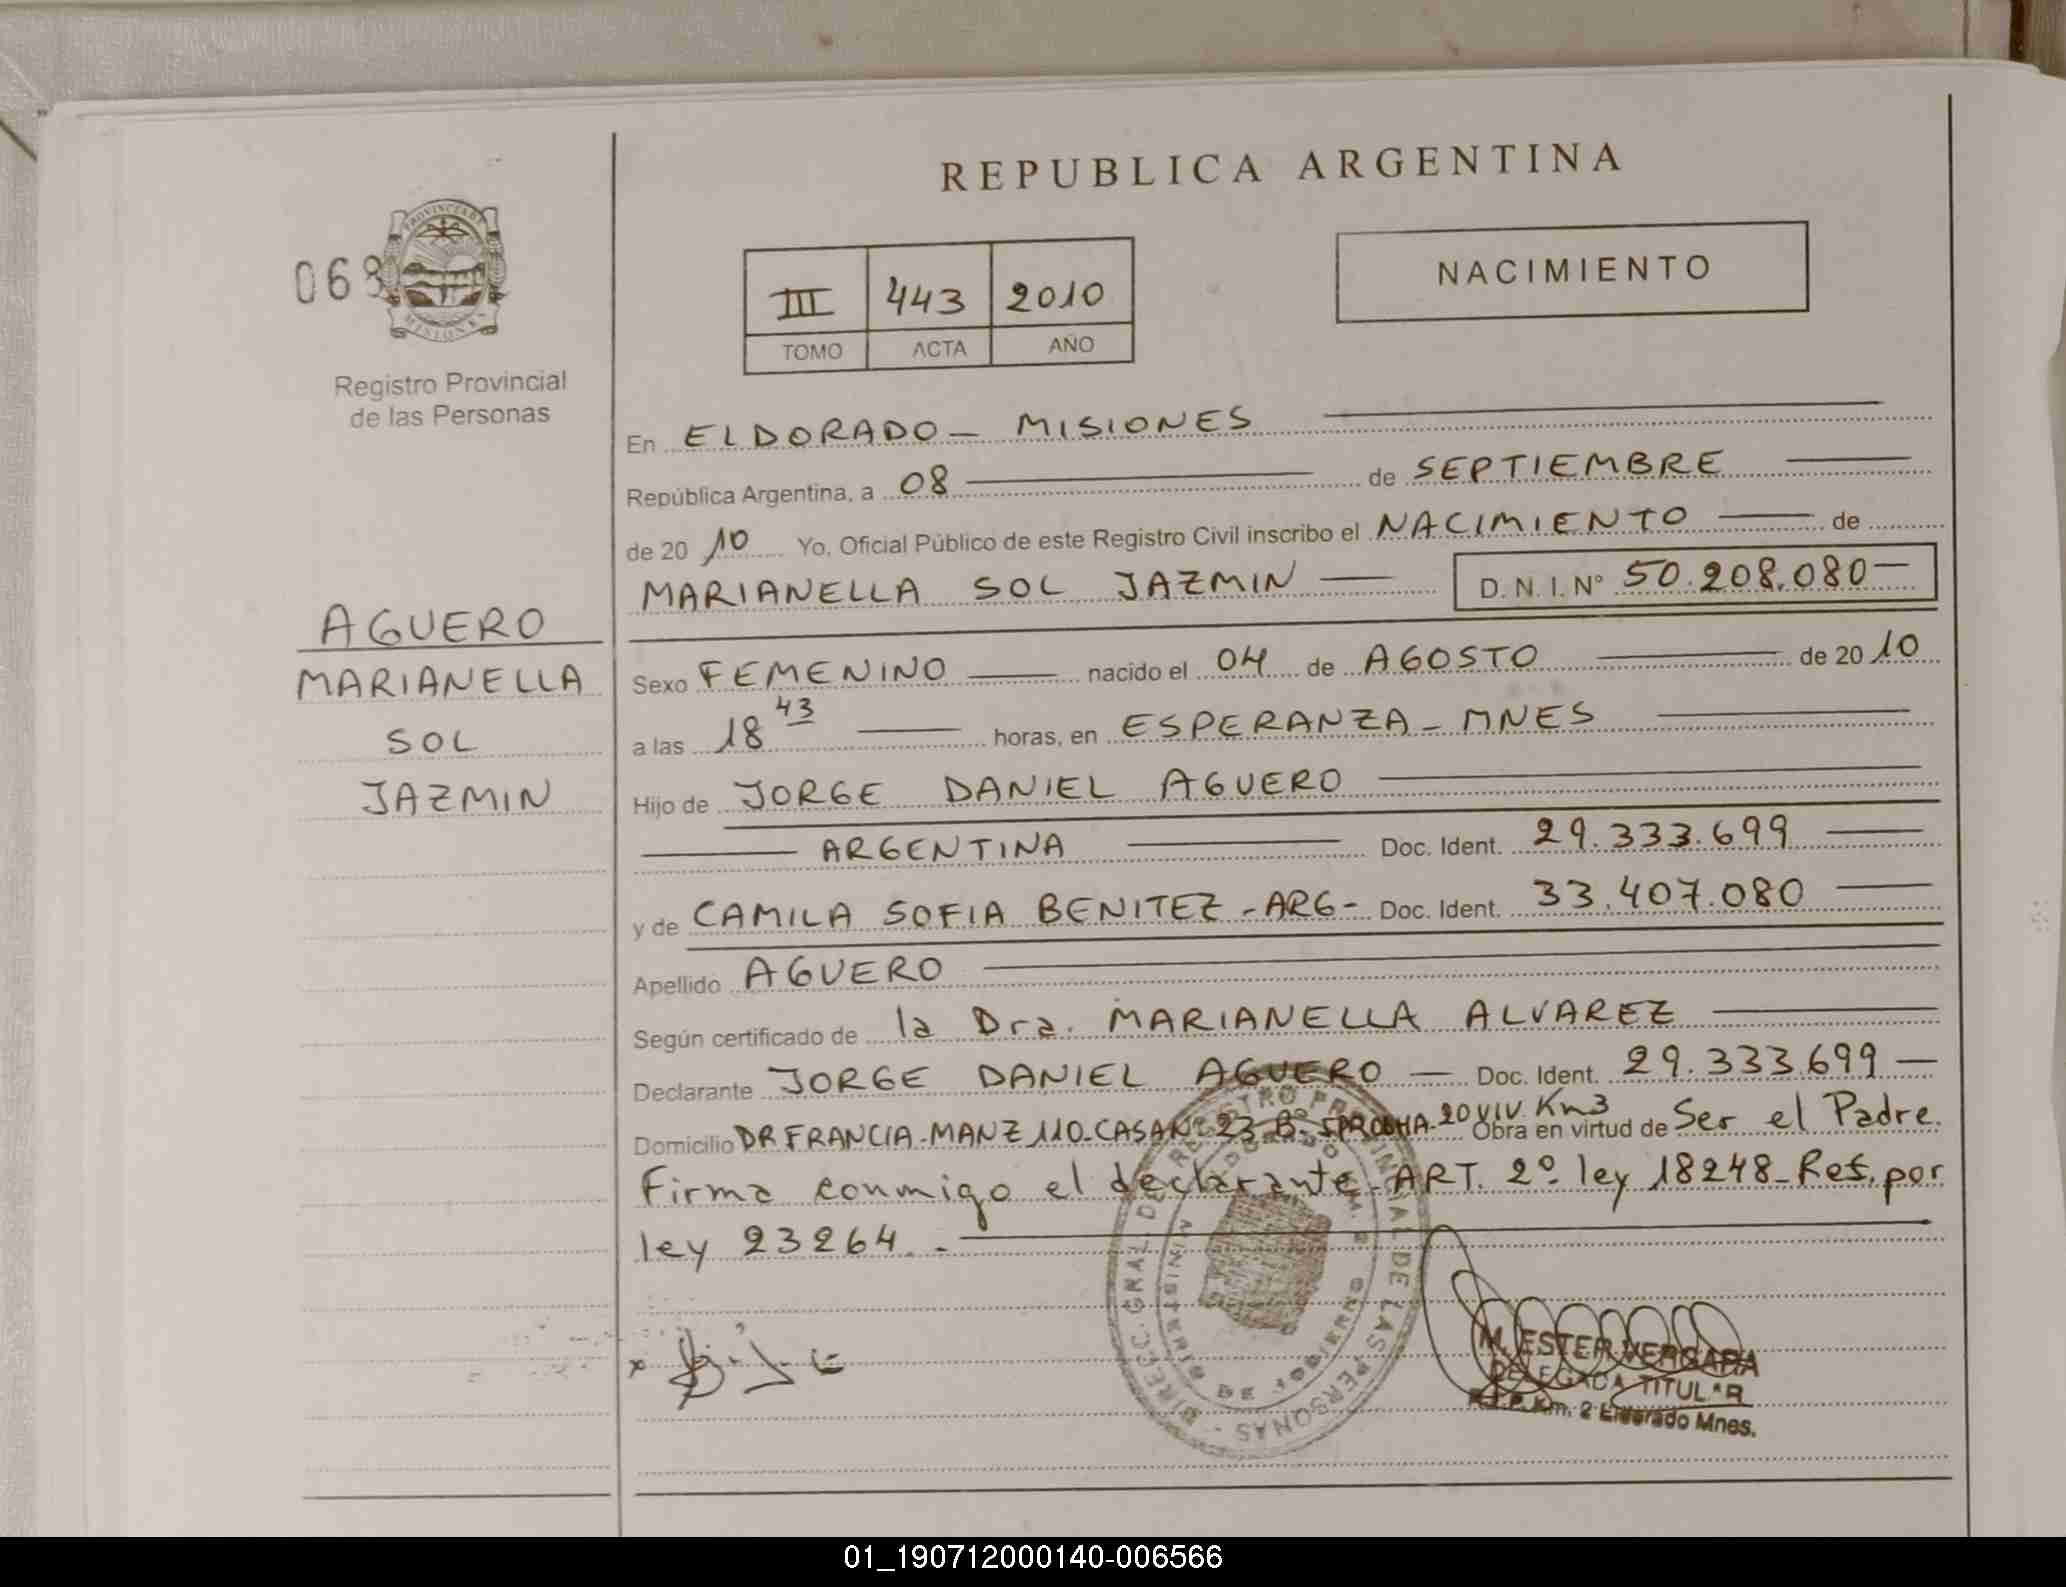 REPUBLICA ARGENTINA
068
PROVINCIA DE
MISIONES
Registro Provincial
de las Personas
III 443 2010
TOMO ACTA AÑO
NACIMIENTO
AGUERO
MARIANELLA
SOL
JAZMIN
En ELDORADO - MISIONES
República Argentina, a 08 de SEPTIEMBRE
de 20 10 Yo, Oficial Público de este Registro Civil inscribo el NACIMIENTO de
MARIANELLA SOL JAZMIN D.N.I. N° 50.208.080
Sexo FEMENINO nacido el 04 de AGOSTO de 20 10
a las 18 43 horas, en ESPERANZA - MNES
Hijo de JORGE DANIEL AGUERO
ARGENTINA Doc. Ident. 29.333.699
y de CAMILA SOFIA BENITEZ - ARG - Doc. Ident. 33.407.080
Apellido AGUERO
Según certificado de la Dra. MARIANELLA ALVAREZ
Declarante JORGE DANIEL AGUERO Doc. Ident. 29.333.699
Domicilio DR FRANCIA - MANZ 110 - CASA N° 23 B° 20 VIV. Km 3 Obra en virtud de Ser el Padre.
Firma conmigo el declarante - ART. 2° ley 18248 - Res. por
ley 23264. -
DIRECC. GRAL. DE REGISTRO PROVINCIAL DE LAS PERSONAS
MINISTERIO DE GOBIERNO
M. ESTER VERGARA
DELEGADA TITULAR
R.P.P. Km. 2 Eldorado Mnes.
01_190712000140-006566